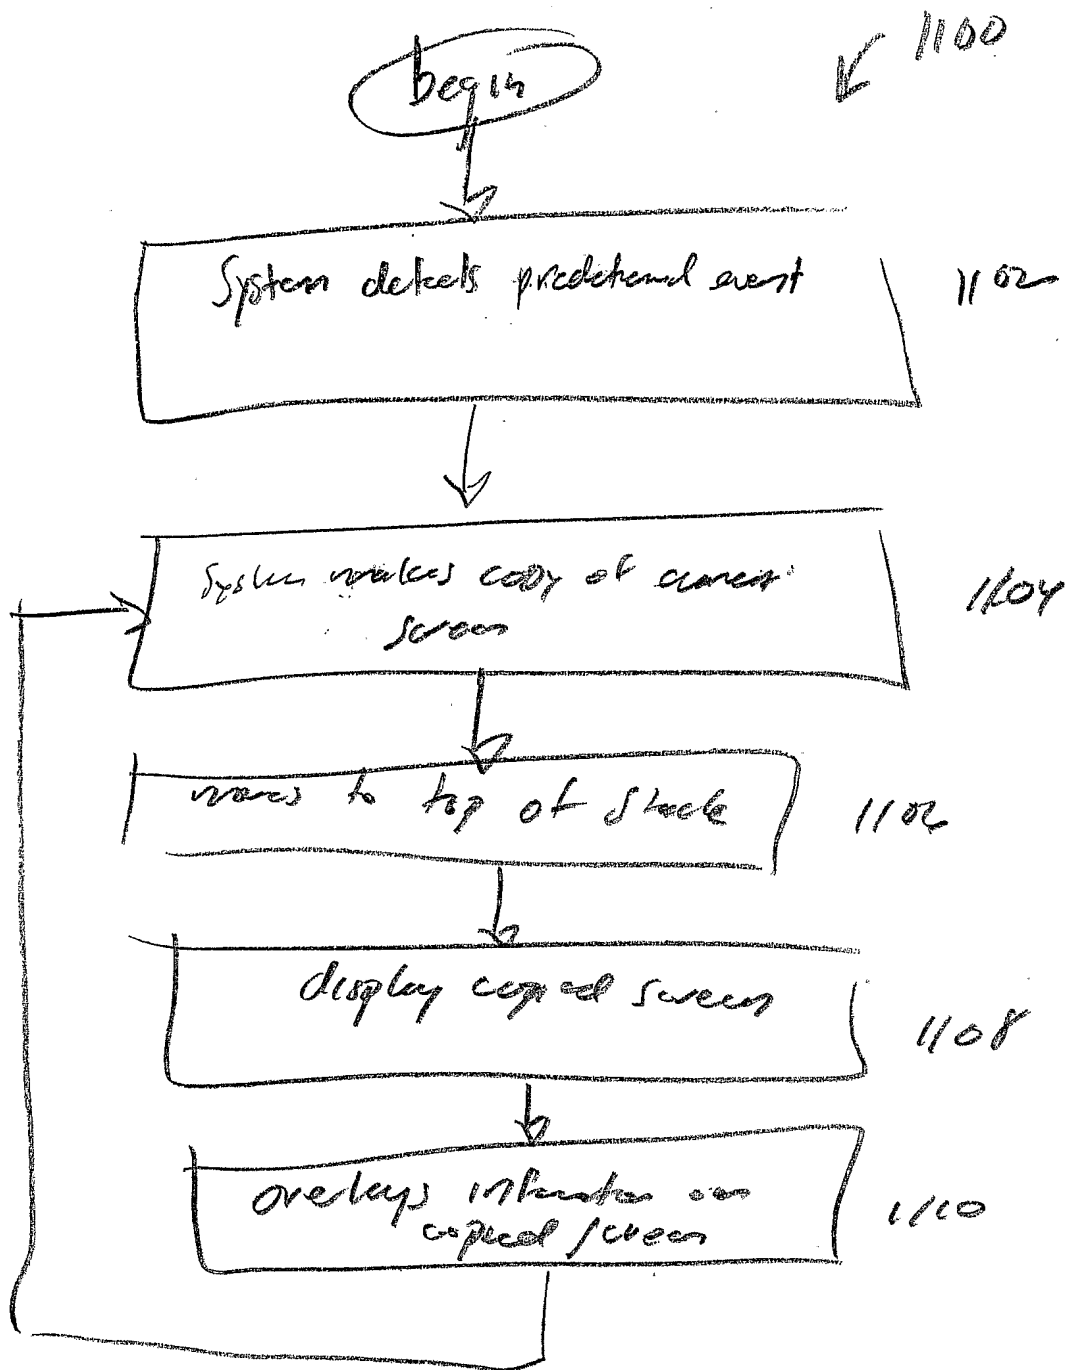 begin
1100
System detects predetermined event
1102
System makes copy of current
screen
1104
moves to top of stack
1106
display copied screen
1108
overlays information on
copied screen
1110